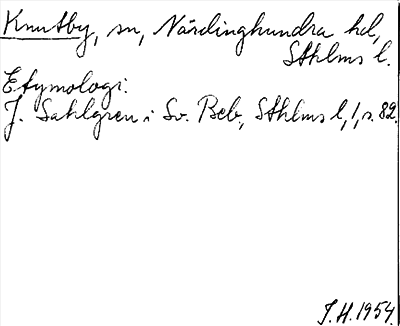 Knutby, sn, Närdinghundra hd,
Sthlms l.
Etymologi:
J. Sahlgren i Sv. Beb., Sthlms l, 1, s. 82.
J.H. 1954.